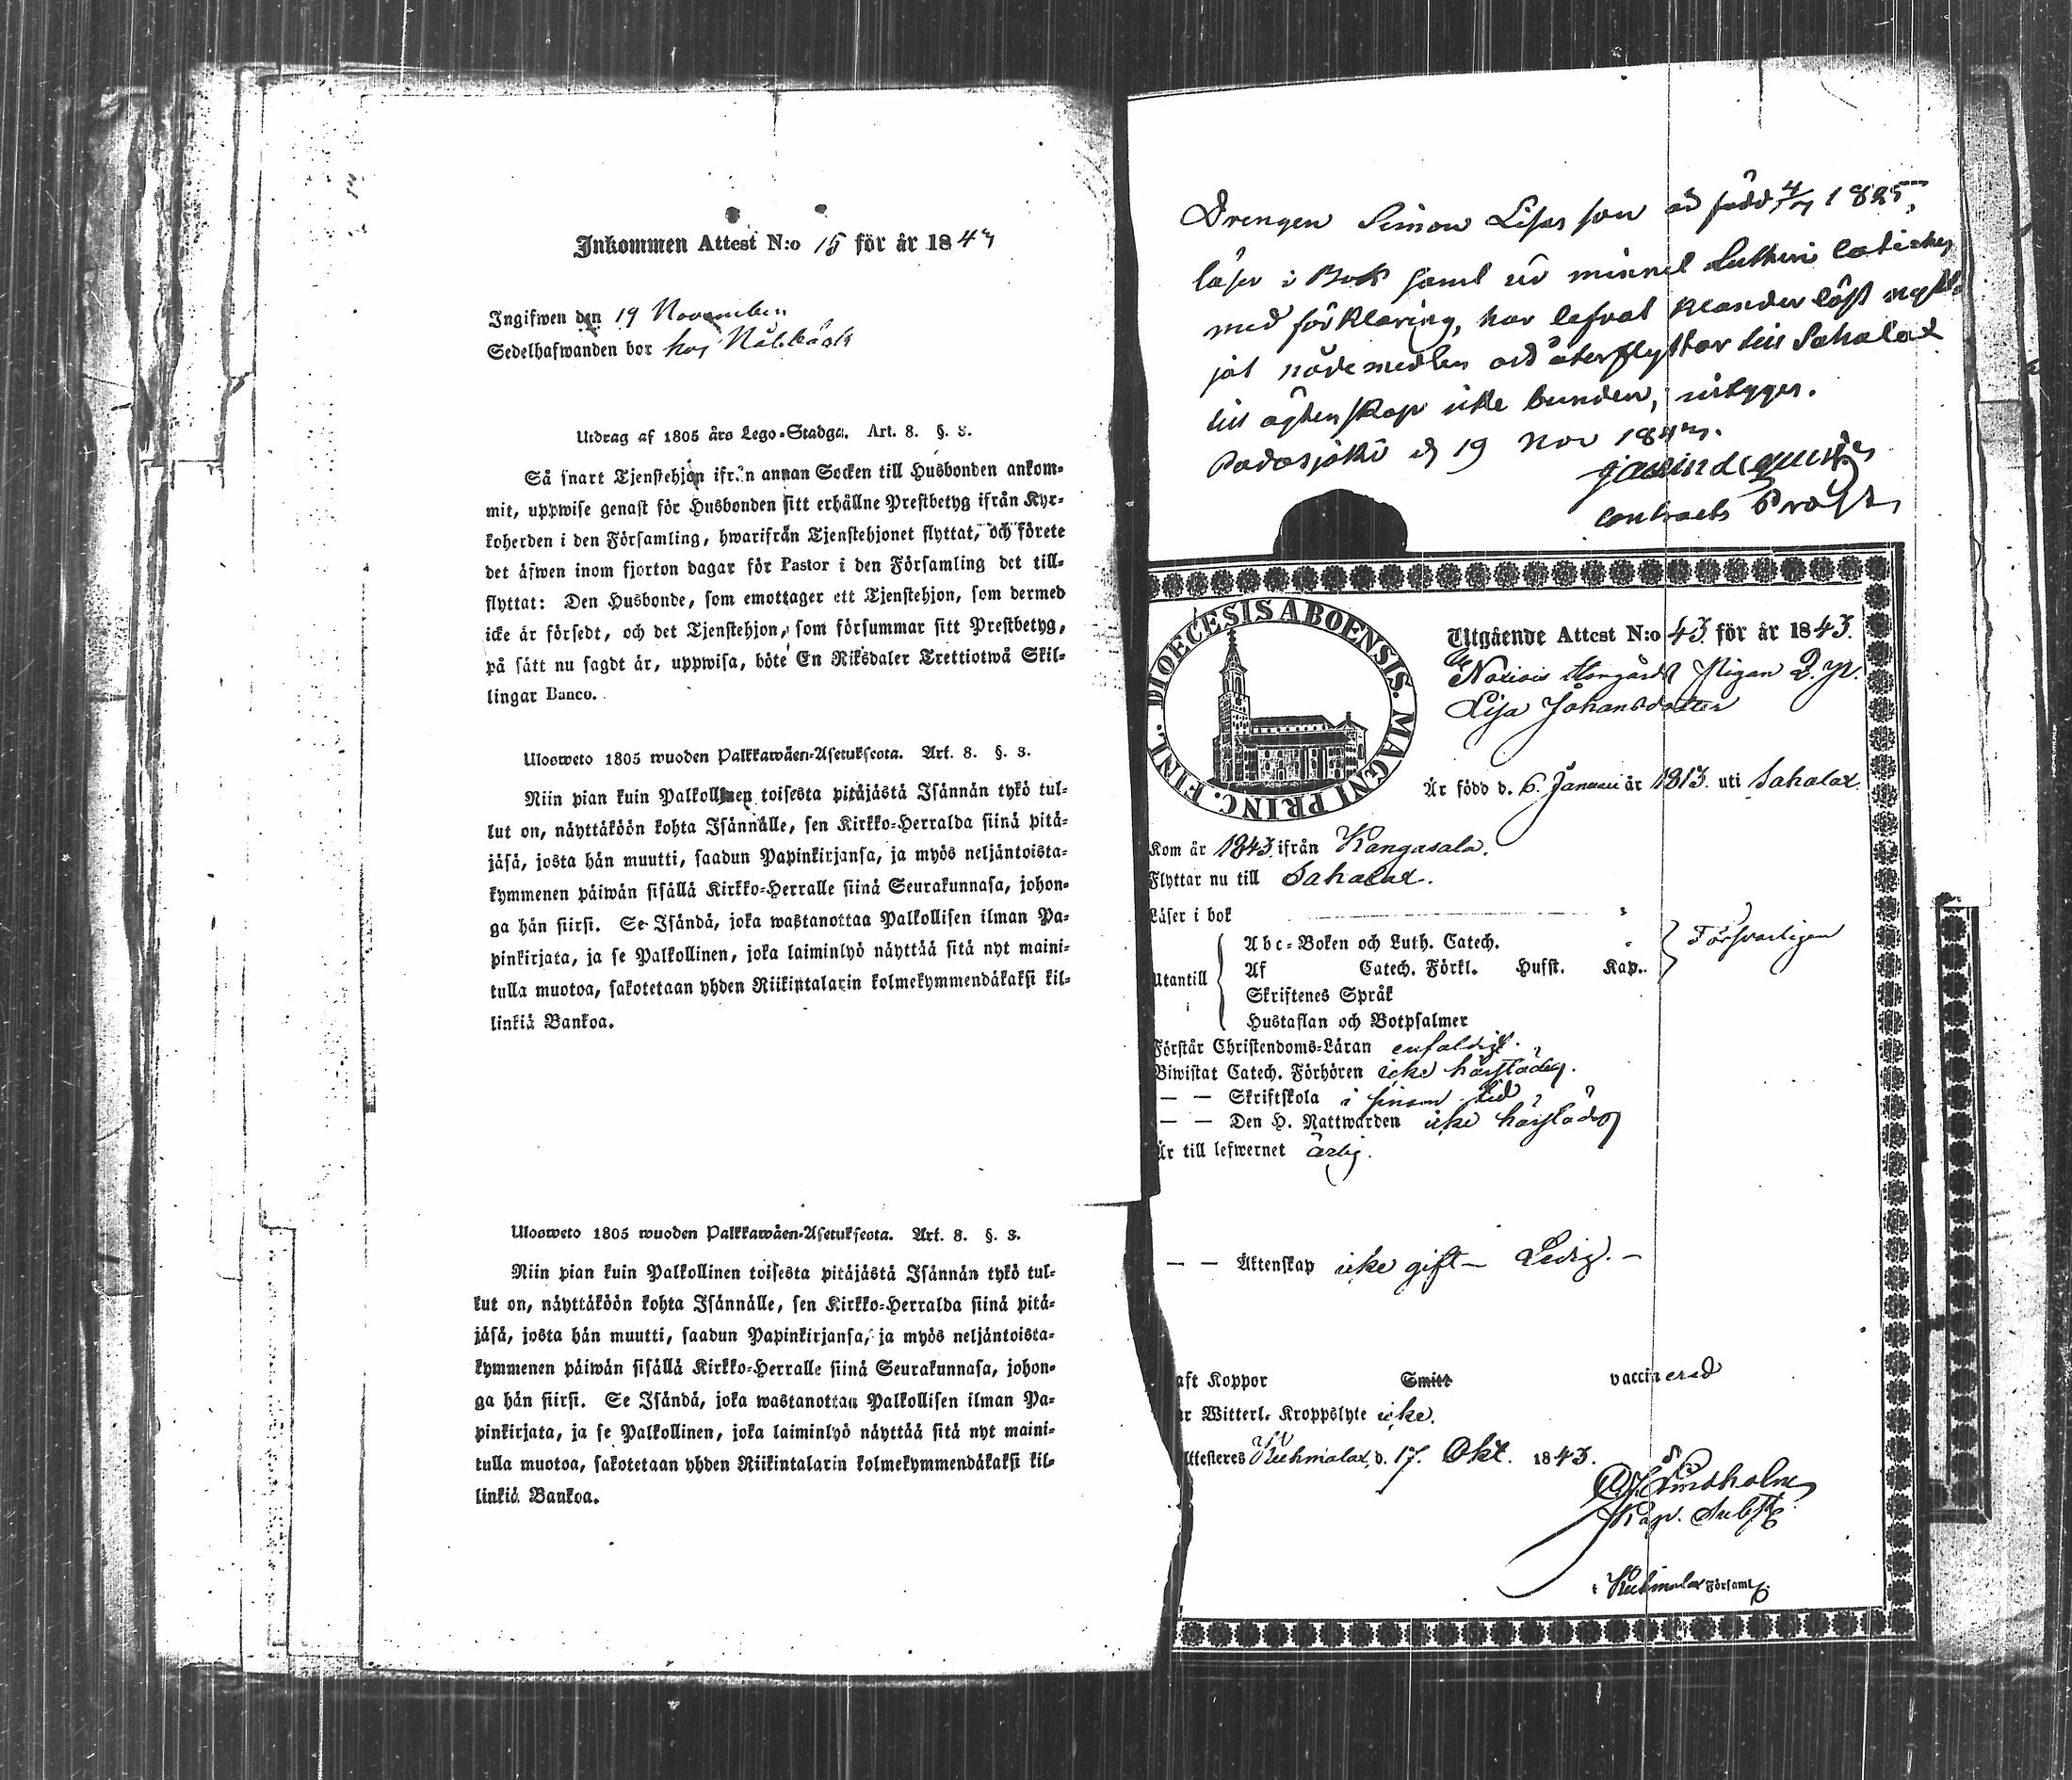 Inkommen Attest N:o 15 för år 1843
Ingifwen den 19 November
Sedelhafwanden bor hos
Utdrag af 1805 års Lego-Stadga. Art. 8. §. 3.
Så snart Tjenstehjon ifrån annan Socken till Husbonden ankom-
mit, uppwise genast för Husbonden sitt erhållne Prestbetyg ifrån Kyr-
koherden i den Församling, hwarifrån Tjenstehjonet flyttat, och förete
det äfwen inom fjorton dagar för Pastor i den Församling det till-
flyttat: Den Husbonde, som emottager ett Tjenstehjon, som dermed
icke är försedt, och det Tjenstehjon, som försummar sitt Prestbetyg,
på sätt nu sagdt är, uppwisa, böte En Riksdaler Trettiotwå Skil-
lingar Banco.
Ulosweto 1805 wuoden Palkkawäen-Asetuksesta. Art. 8. §. 3.
Niin pian kuin Palkollinen toisesta pitäjästä Isännän tykö tul-
lut on, näyttäköön kohta Isännälle, sen Kirkko-Herralda siinä pitä-
jäsä, josta hän muutti, saadun Papinkirjansa, ja myös neljäntoista-
kymmenen päiwän sisällä Kirkko-Herralle siinä Seurakunnasa, johon-
ga hän siirsi. Se Isändä, joka wastanottaa Palkollisen ilman Pa-
pinkirjata, ja se Palkollinen, joka laiminlyö näyttää sitä nyt maini-
tulla muotoa, sakotetaan yhden Riikintalarin kolmekymmendäkaksi kil-
linkiä Bankoa.
Ulosweto 1805 wuoden Palkkawäen-Asetuksesta. Art. 8. §. 3.
Niin pian kuin Palkollinen toisesta pitäjästä Isännän tykö tul-
lut on, näyttäköön kohta Isännälle, sen Kirkko-Herralda siinä pitä-
jäsä, josta hän muutti, saadun Papinkirjansa, ja myös neljäntoista-
kymmenen päiwän sisällä Kirkko-Herralle siinä Seurakunnasa, johon-
ga hän siirsi. Se Isändä, joka wastanottaa Palkollisen ilman Pa-
pinkirjata, ja se Palkollinen, joka laiminlyö näyttää sitä nyt maini-
tulla muotoa, sakotetaan yhden Riikintalarin kolmekymmendäkaksi kil-
linkiä Bankoa.
Drengen Simon Lisas son född 4/7 1825,
läser i Bok samt ur minnet Lutheri
med förklaring, har lefvat klanderlöst
nådemedlen och återflyttar till Sahalax
till ägtenskap icke bunden, intygger.
Padasjoki d 19 Nov 1843.
Contracts Prost
DIOECESIS ABOENSIS. MAGNI PRINC. FINL.
Utgående Attest N:o 43 för år 1843.
Pigan
Lisa Johansdotter
Är född d. 6. Januari år 1813. uti Sahalax.
Kom år 1843. ifrån Kangasala.
Flyttar nu till Sahalax.
Läser i bok
Abc-Boken och Luth. Catech.
Utantill Af Catech. Förkl. Hufst. Kap. Försvarligen
Skriftenes Språk
Hustaflan och Botpsalmer
Förstår Christendoms-Läran enfaldigt.
Biwistat Catech. Förhören icke härstädes.
— — Skriftskola i sinom tid
— — Den H. Nattwarden icke härstädes
Är till lefwernet ärlig.
— — Äktenskap icke gift — Ledig. —
aft Koppor Smitt vaccinerad
r Witterl. Kroppslyte icke.
Attesteres Kuhmalax, d. 17. Okt. 1843.
Lindholm
Kap. Subst.
i Kuhmalax Församl.